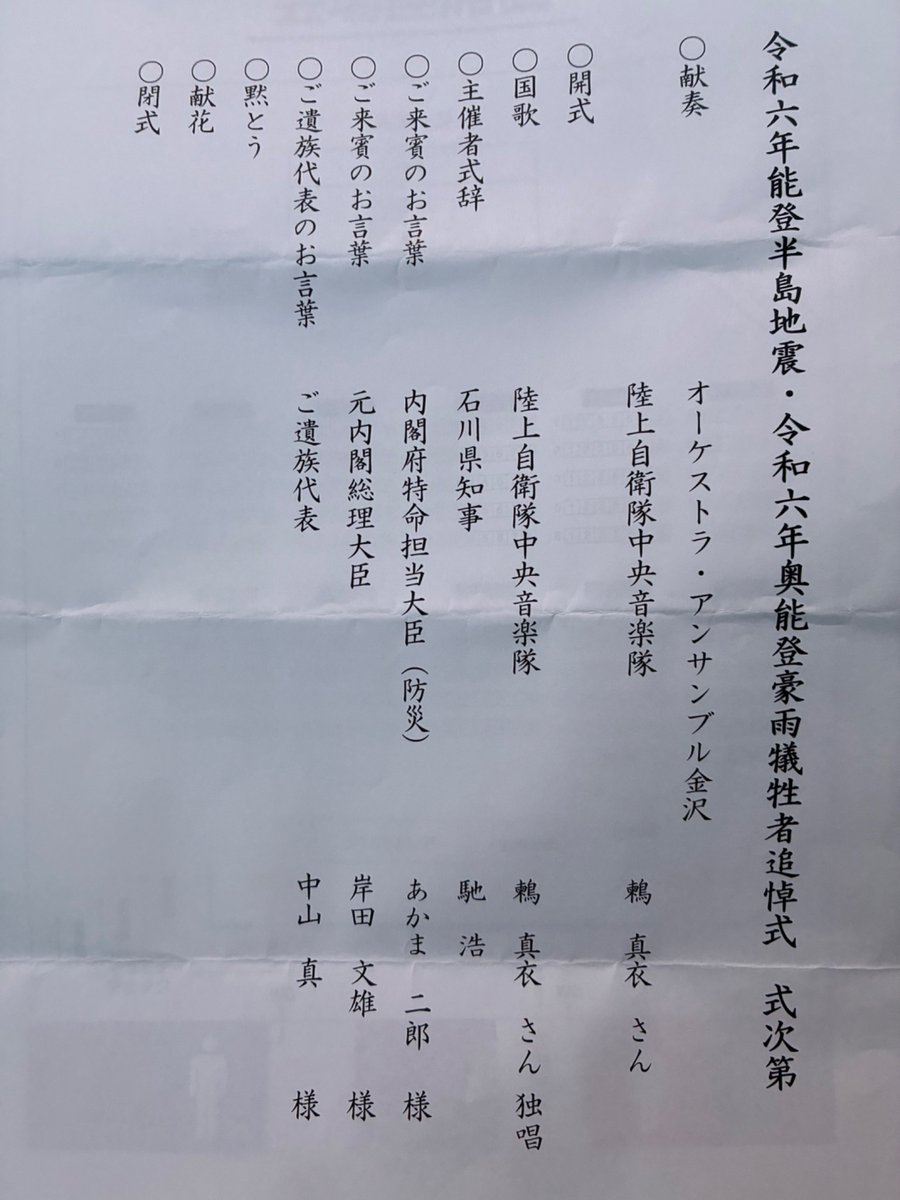 令和六年能登半島地震・令和六年奥能登豪雨犠牲者追悼式 式次第
○献奏 オーケストラ・アンサンブル金沢
陸上自衛隊中央音楽隊 鶫 真衣 さん
○開式
○国歌 陸上自衛隊中央音楽隊 鶫 真衣 さん 独唱
○主催者式辞 石川県知事 馳 浩
○ご来賓のお言葉 内閣府特命担当大臣（防災） あかま 二郎 様
○ご来賓のお言葉 元内閣総理大臣 岸田 文雄 様
○ご遺族代表のお言葉 ご遺族代表 中山 真 様
○黙とう
○献花
○閉式